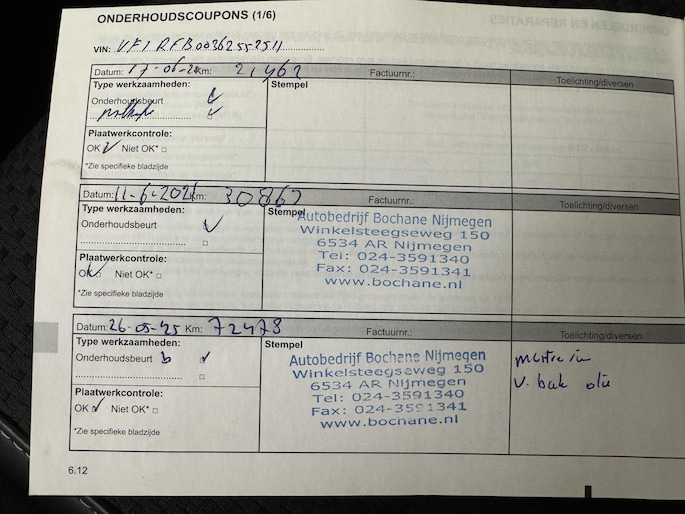 ONDERHOUDSCOUPONS (1/6)
VIN: VF1RFB00362552511
Datum: 17-06-2 Km: 21462 Factuurnr.: Toelichting/diversen
Type werkzaamheden: Stempel
Onderhoudsbeurt
Plaatwerkcontrole:
OK Niet OK*
*Zie specifieke bladzijde
Datum: 11-6-202 Km: 30862 Factuurnr.: Toelichting/diversen
Type werkzaamheden: Stempel
Onderhoudsbeurt
Plaatwerkcontrole:
OK Niet OK*
*Zie specifieke bladzijde
Autobedrijf Bochane Nijmegen
Winkelsteegseweg 150
6534 AR Nijmegen
Tel: 024-3591340
Fax: 024-3591341
www.bochane.nl
Datum: 26-05-25 Km: 72478 Factuurnr.: Toelichting/diversen
Type werkzaamheden: Stempel
Onderhoudsbeurt b
Plaatwerkcontrole:
OK Niet OK*
*Zie specifieke bladzijde
Autobedrijf Bochane Nijmegen
Winkelsteegseweg 150
6534 AR Nijmegen
Tel: 024-3591340
Fax: 024-3591341
www.bochane.nl
v. bak olie
6.12